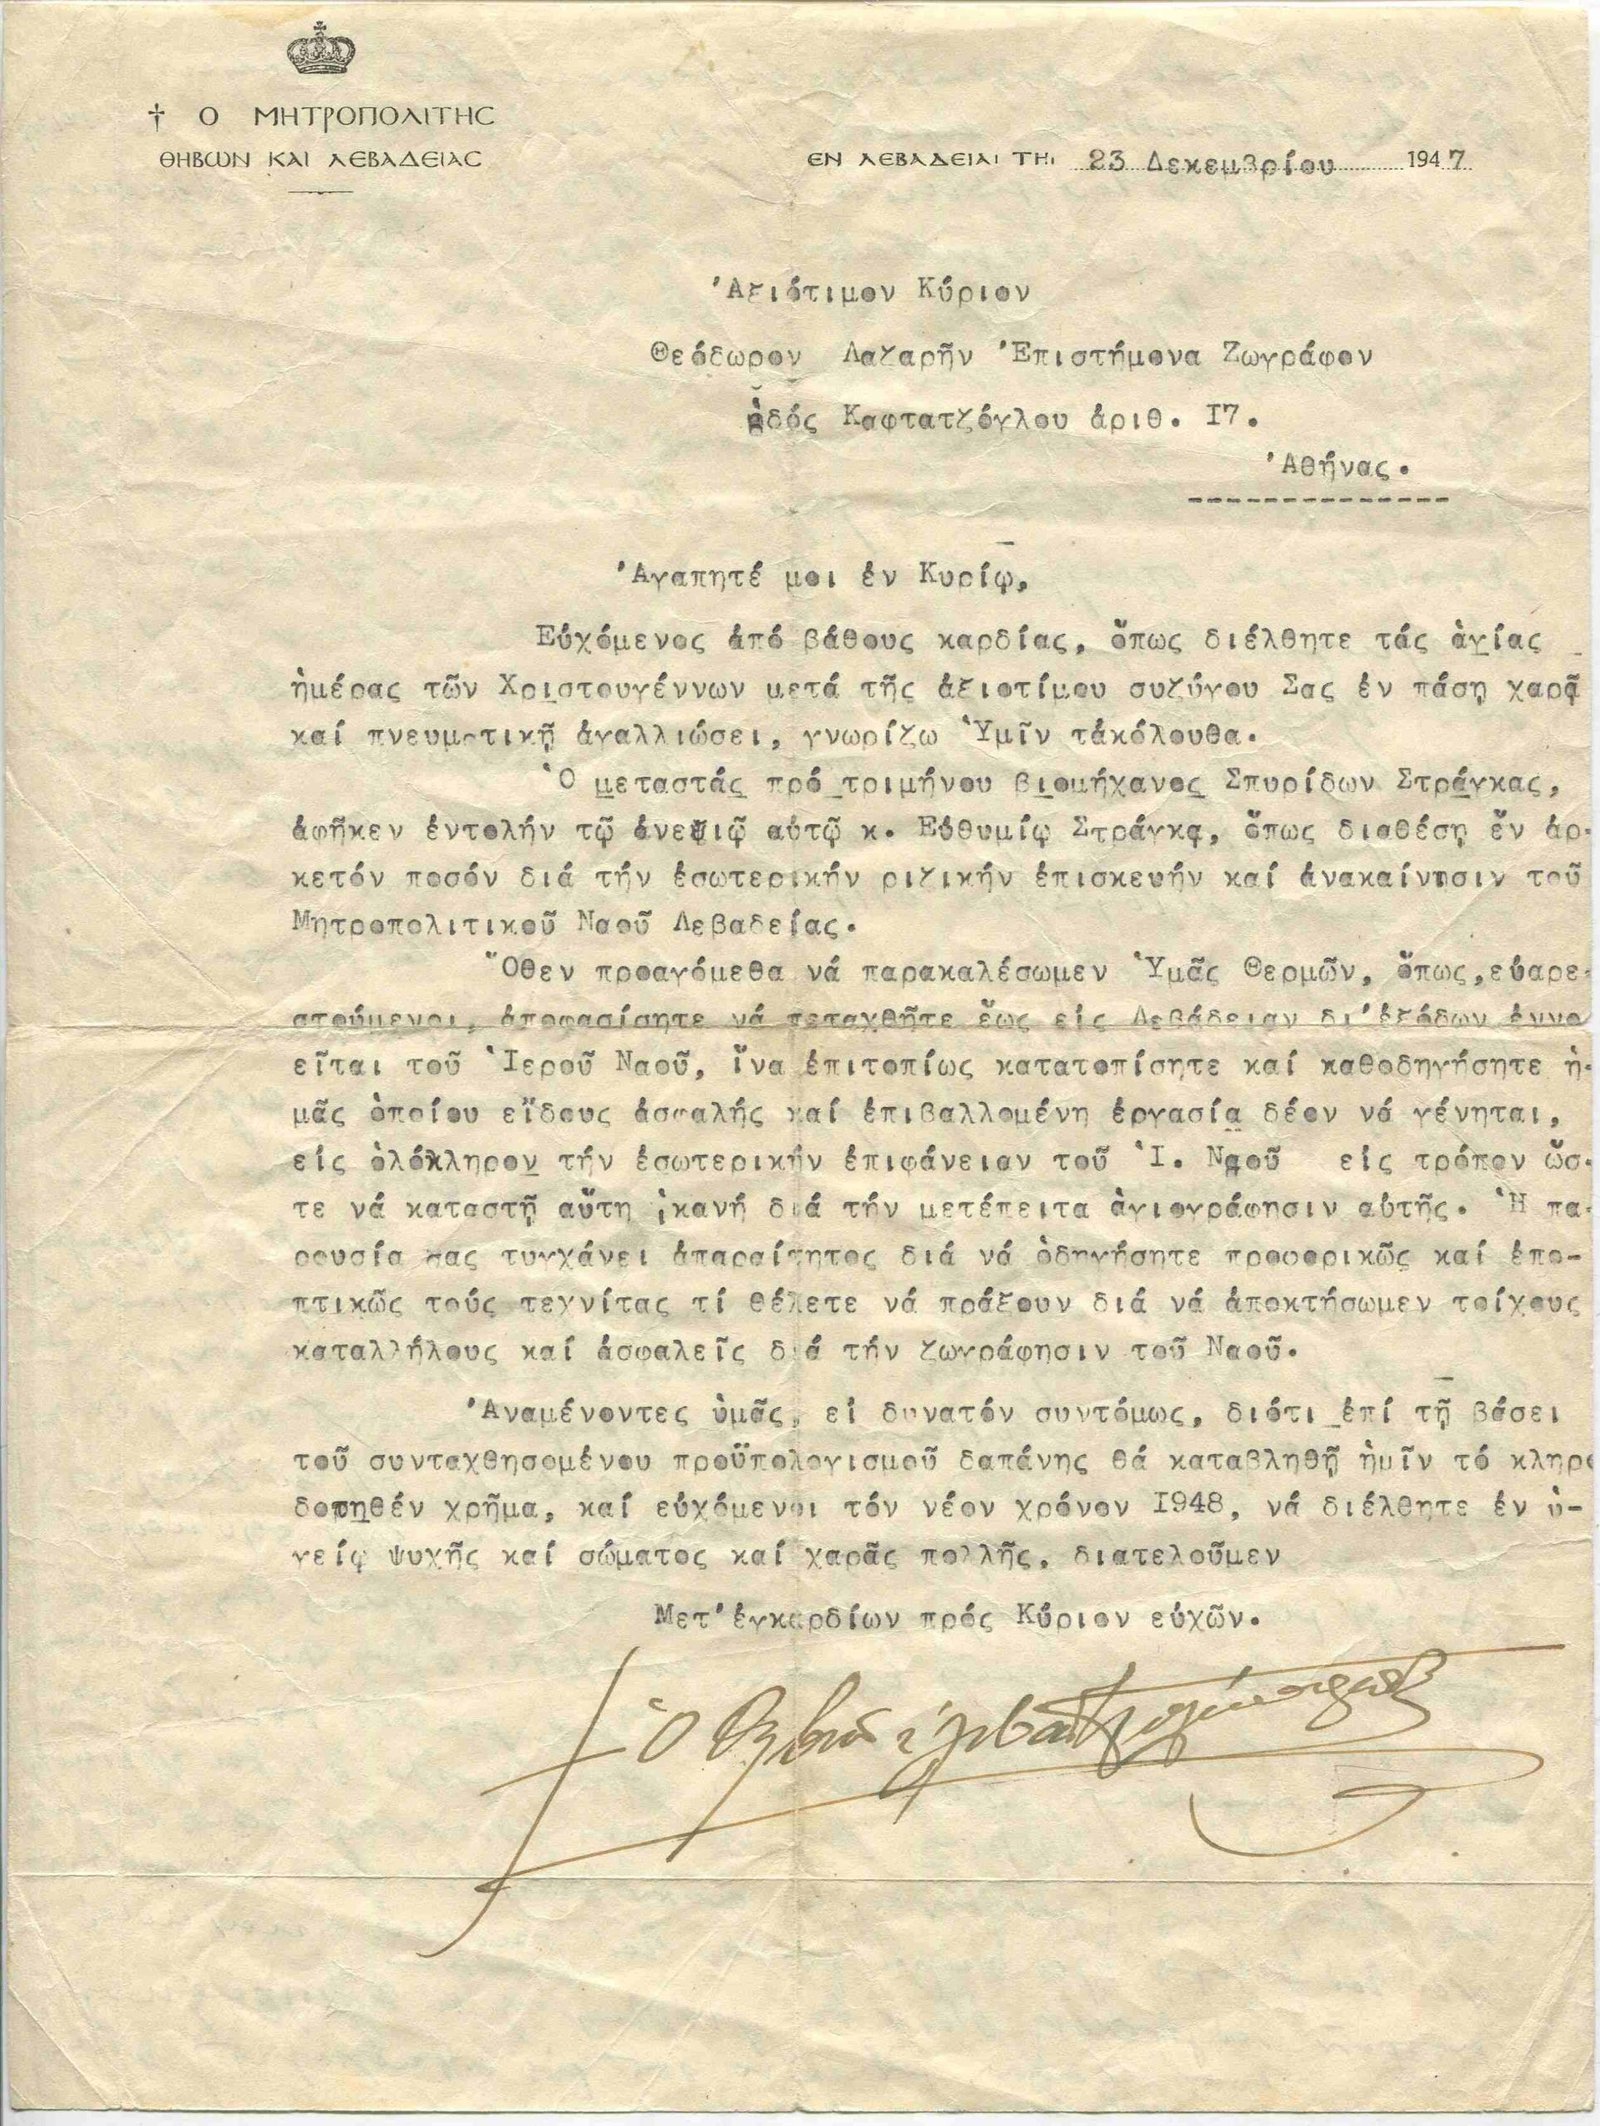 † Ο ΜΗΤΡΟΠΟΛΙΤΗΣ
ΘΗΒΩΝ ΚΑΙ ΛΕΒΑΔΕΙΑΣ
ΕΝ ΛΕΒΑΔΕΙΑι ΤΗι 23 Δεκεμβρίου 1947
Ἀξιότιμον Κύριον
Θεόδωρον Λαζαρῆν Ἐπιστήμονα Ζωγράφον
ὁδός Καφτατζόγλου ἀριθ. Ι7.
Ἀθήνας.
Ἀγαπητέ μοι ἐν Κυρίῳ,
Εὐχόμενος ἀπό βάθους καρδίας, ὅπως διέλθητε τάς ἁγίας
ἡμέρας τῶν Χριστουγέννων μετά τῆς ἀξιοτίμου συζύγου Σας ἐν πάσῃ χαρᾷ
καί πνευματικῇ ἀγαλλιώσει, γνωρίζω Ὑμῖν τἀκόλουθα.
Ὁ μεταστάς πρό τριμήνου βιομήχανος Σπυρίδων Στράγκας,
ἀφῆκεν ἐντολήν τῷ ἀνεψιῷ αὐτῷ κ. Εὐθυμίῳ Στράγκᾳ, ὅπως διαθέσῃ ἕν ἀρ-
κετόν ποσόν διά τήν ἐσωτερικήν ριζικήν ἐπισκευήν καί ἀνακαίνισιν τοῦ
Μητροπολιτικοῦ Ναοῦ Λεβαδείας.
Ὅθεν προαγόμεθα νά παρακαλέσωμεν Ὑμᾶς Θερμῶν, ὅπως,εὐαρε-
στούμενοι, ἀποφασίσητε νά πεταχθῆτε ἕως εἰς Λεβάδειαν δι'ἐξόδων ἐννο
εῖται τοῦ Ἱεροῦ Ναοῦ, ἵνα ἐπιτοπίως κατατοπίσητε καί καθοδηγήσητε ἡ-
μᾶς ὁποίου εἴδους ἀσφαλής καί ἐπιβαλλομένη ἐργασία δέον νά γένηται,
εἰς ὁλόκληρον τήν ἐσωτερικήν ἐπιφάνειαν τοῦ Ἱ. Ναοῦ εἰς τρόπον ὥσ-
τε νά καταστῇ αὕτη ἱκανή διά τήν μετέπειτα ἁγιογράφησιν αὐτῆς. Ἡ πα-
ρουσία σας τυγχάνει ἀπαραίτητος διά νά ὁδηγήσητε προφορικῶς καί ἐπο-
πτικῶς τούς τεχνίτας τί θέλετε νά πράξουν διά νά ἀποκτήσωμεν τοίχους
καταλλήλους καί ἀσφαλεῖς διά τήν ζωγράφησιν τοῦ Ναοῦ.
Ἀναμένοντες ὑμᾶς, εἰ δυνατόν συντόμως, διότι ἐπί τῇ βάσει
τοῦ συνταχθησομένου προϋπολογισμοῦ δαπάνης θά καταβληθῇ ἡμῖν τό κληρο
δοτηθέν χρῆμα, καί εὐχόμενοι τόν νέον χρόνον Ι948, νά διέλθητε ἐν ὑ-
γείᾳ ψυχῆς καί σώματος καί χαρᾶς πολλῆς, διατελοῦμεν
Μετ'ἐγκαρδίων πρός Κύριον εὐχῶν.